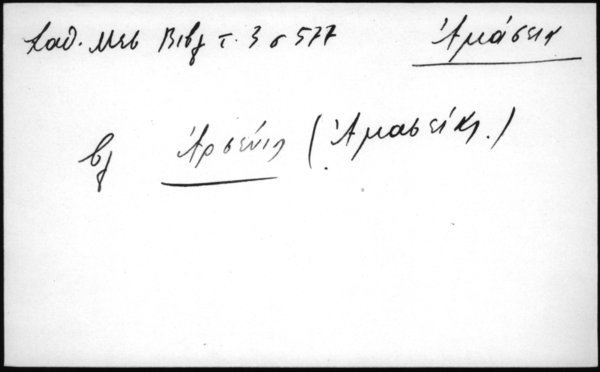 Σαθ. Μεσ Βιβλ τ. 3 σ 577 Ἀμάσεια
βλ Ἀρσένιος (Ἀμασείας.)